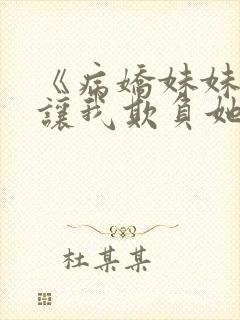 《病嬌妹妹
讓我欺負她
杜某某